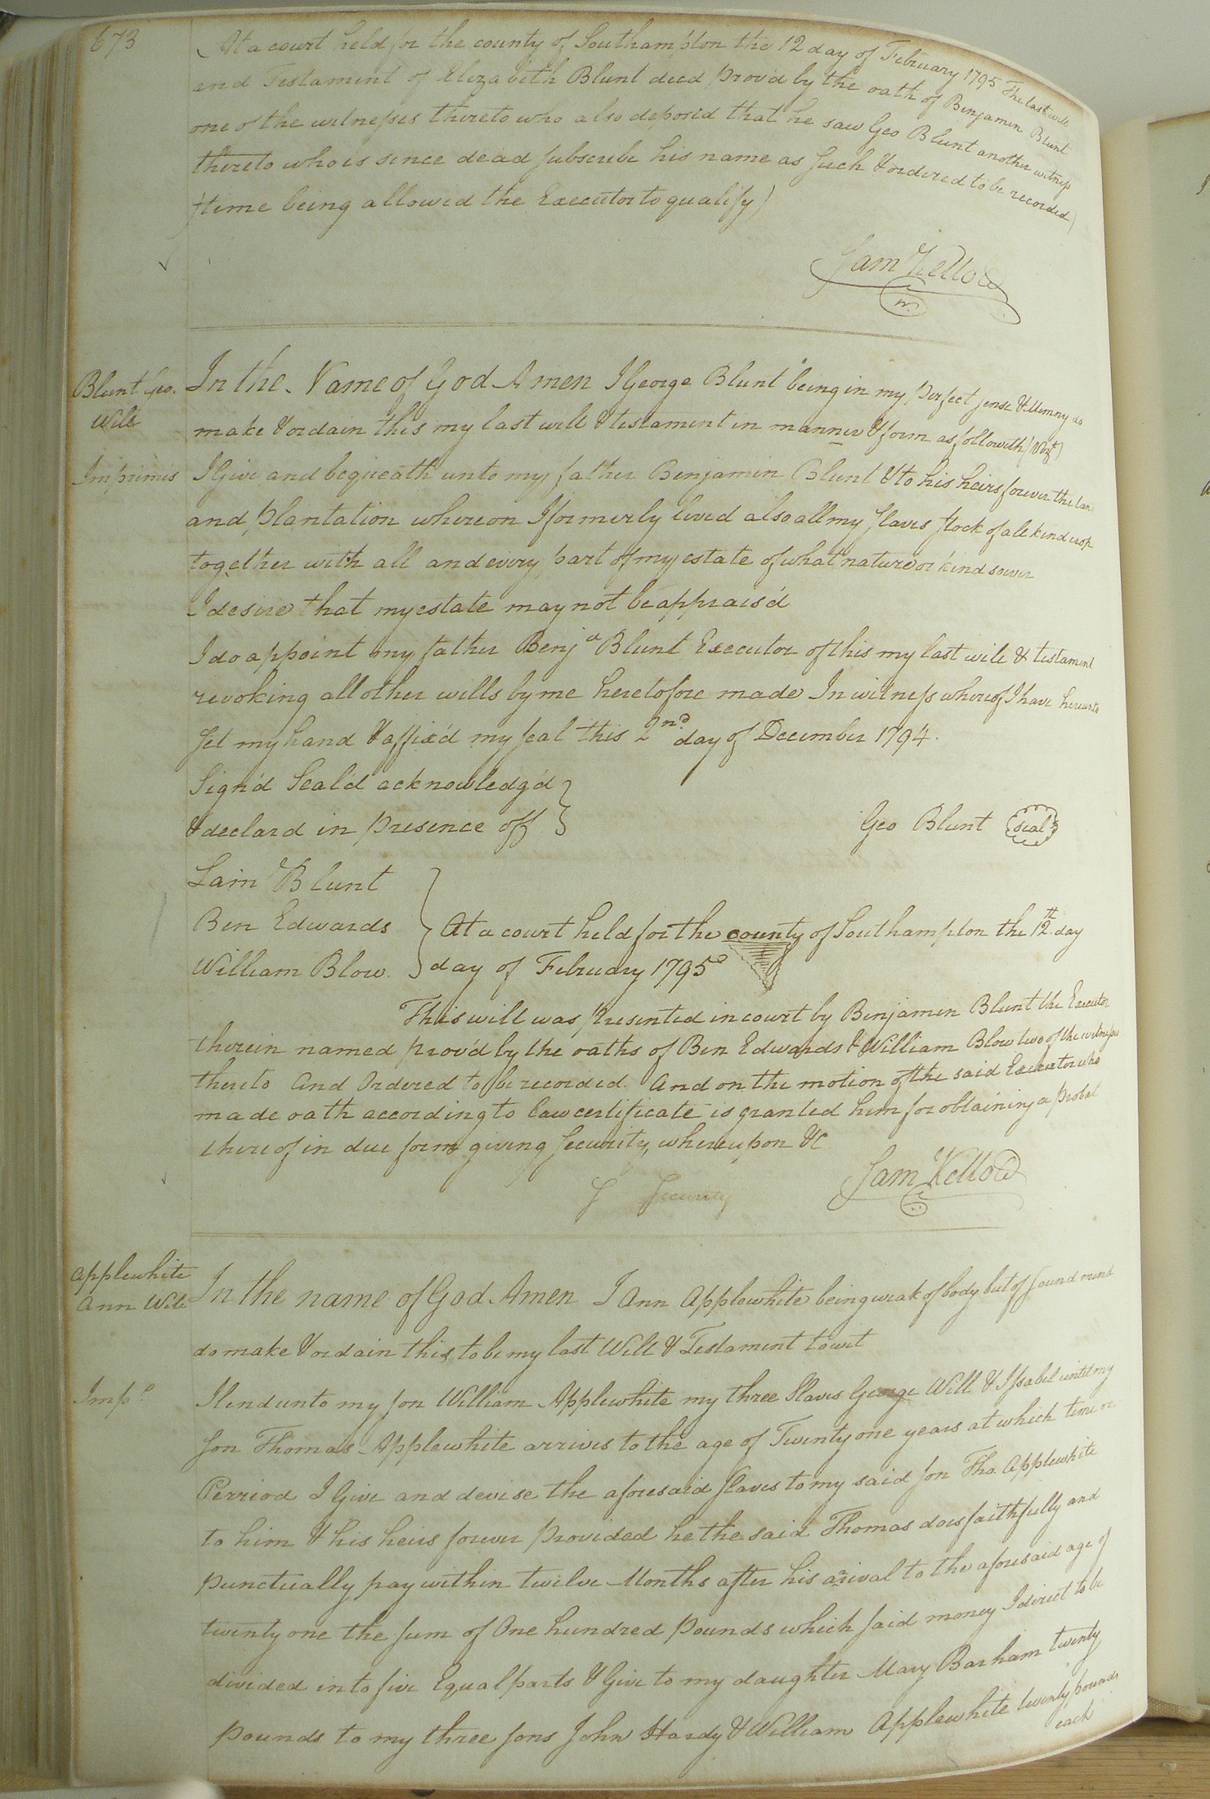 673
At a court held for the county of Southampton the 12 day of February 1795 The last will
and Testament of Elizabeth Blunt deed prov'd by the oath of Benjamin Blunt
one of the witnesses thereto who also depos'd that he saw Geo Blunt another witness
thereto who is since dead subscribe his name as such & ordered to be recorded
(time being allowed the Executor to qualify)
Sam Kello
Blunt Geo.
Will
In the Name of God Amen I George Blunt being in my perfect sense & Memory do
make & ordain this my last will & testament in manner & form as followith (Vizt)
Imprimis
I Give and bequeath unto my father Benjamin Blunt & to his heirs forever the lan
and plantation whereon I formerly lived also all my slaves stock of all kind crop
together with all and every part of my estate of what nature or kind soever
I desire that my estate may not be apprais'd
I do appoint my father Benja Blunt Executor of this my last will & testament
revoking all other wills by me heretofore made In witness whereof I have hereunto
set my hand & affix'd my seal this 2nd day of December 1794.
Sign'd Seal'd acknowledg'd
& declard in presence off
Geo Blunt seal
Saml Blunt
Ben Edwards
William Blow
At a court held for the county of Southampton the 12th day
day of February 1795
This will was presented in court by Benjamin Blunt the Executor
therein named prov'd by the oaths of Ben Edwards & William Blow two of the witnesses
thereto And Ordered to be recorded. And on the motion of the said Executor who
made oath according to law certificate is granted him for obtaining a probat
thereof in due form giving security, whereupon &c
Security
Sam Kello
Applewhite
Ann Will
In the name of God Amen I Ann Applewhite being weak of body but of sound mind
do make & ordain this to be my last Will & Testament to wit
Imps
I lend unto my son William Applewhite my three Slaves George Will & Isabel until my
son Thomas Applewhite arrives to the age of Twenty one years at which time or
Perriod I Give and devise the aforesaid slaves to my said son Tho. Applewhite
to him & his heirs forever provided he the said Thomas does faithfully and
punctually pay within twelve Months after his arival to the aforesaid age of
twenty one the sum of One hundred pounds which said money I direct to be
divided into five Equal parts & Give to my daughter Mary Barham twenty
pounds to my three sons John Hardy & William Applewhite twenty pounds
each